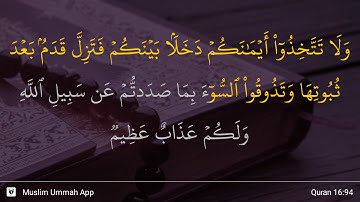 وَلَا تَتَّخِذُوٓا۟ أَيْمَـٰنَكُمْ دَخَلًۢا بَيْنَكُمْ فَتَزِلَّ قَدَمٌۢ بَعْدَ
ثُبُوتِهَا وَتَذُوقُوا۟ ٱلسُّوٓءَ بِمَا صَدَدتُّمْ عَن سَبِيلِ ٱللَّهِ
وَلَكُمْ عَذَابٌ عَظِيمٌ
Muslim Ummah App Quran 16:94